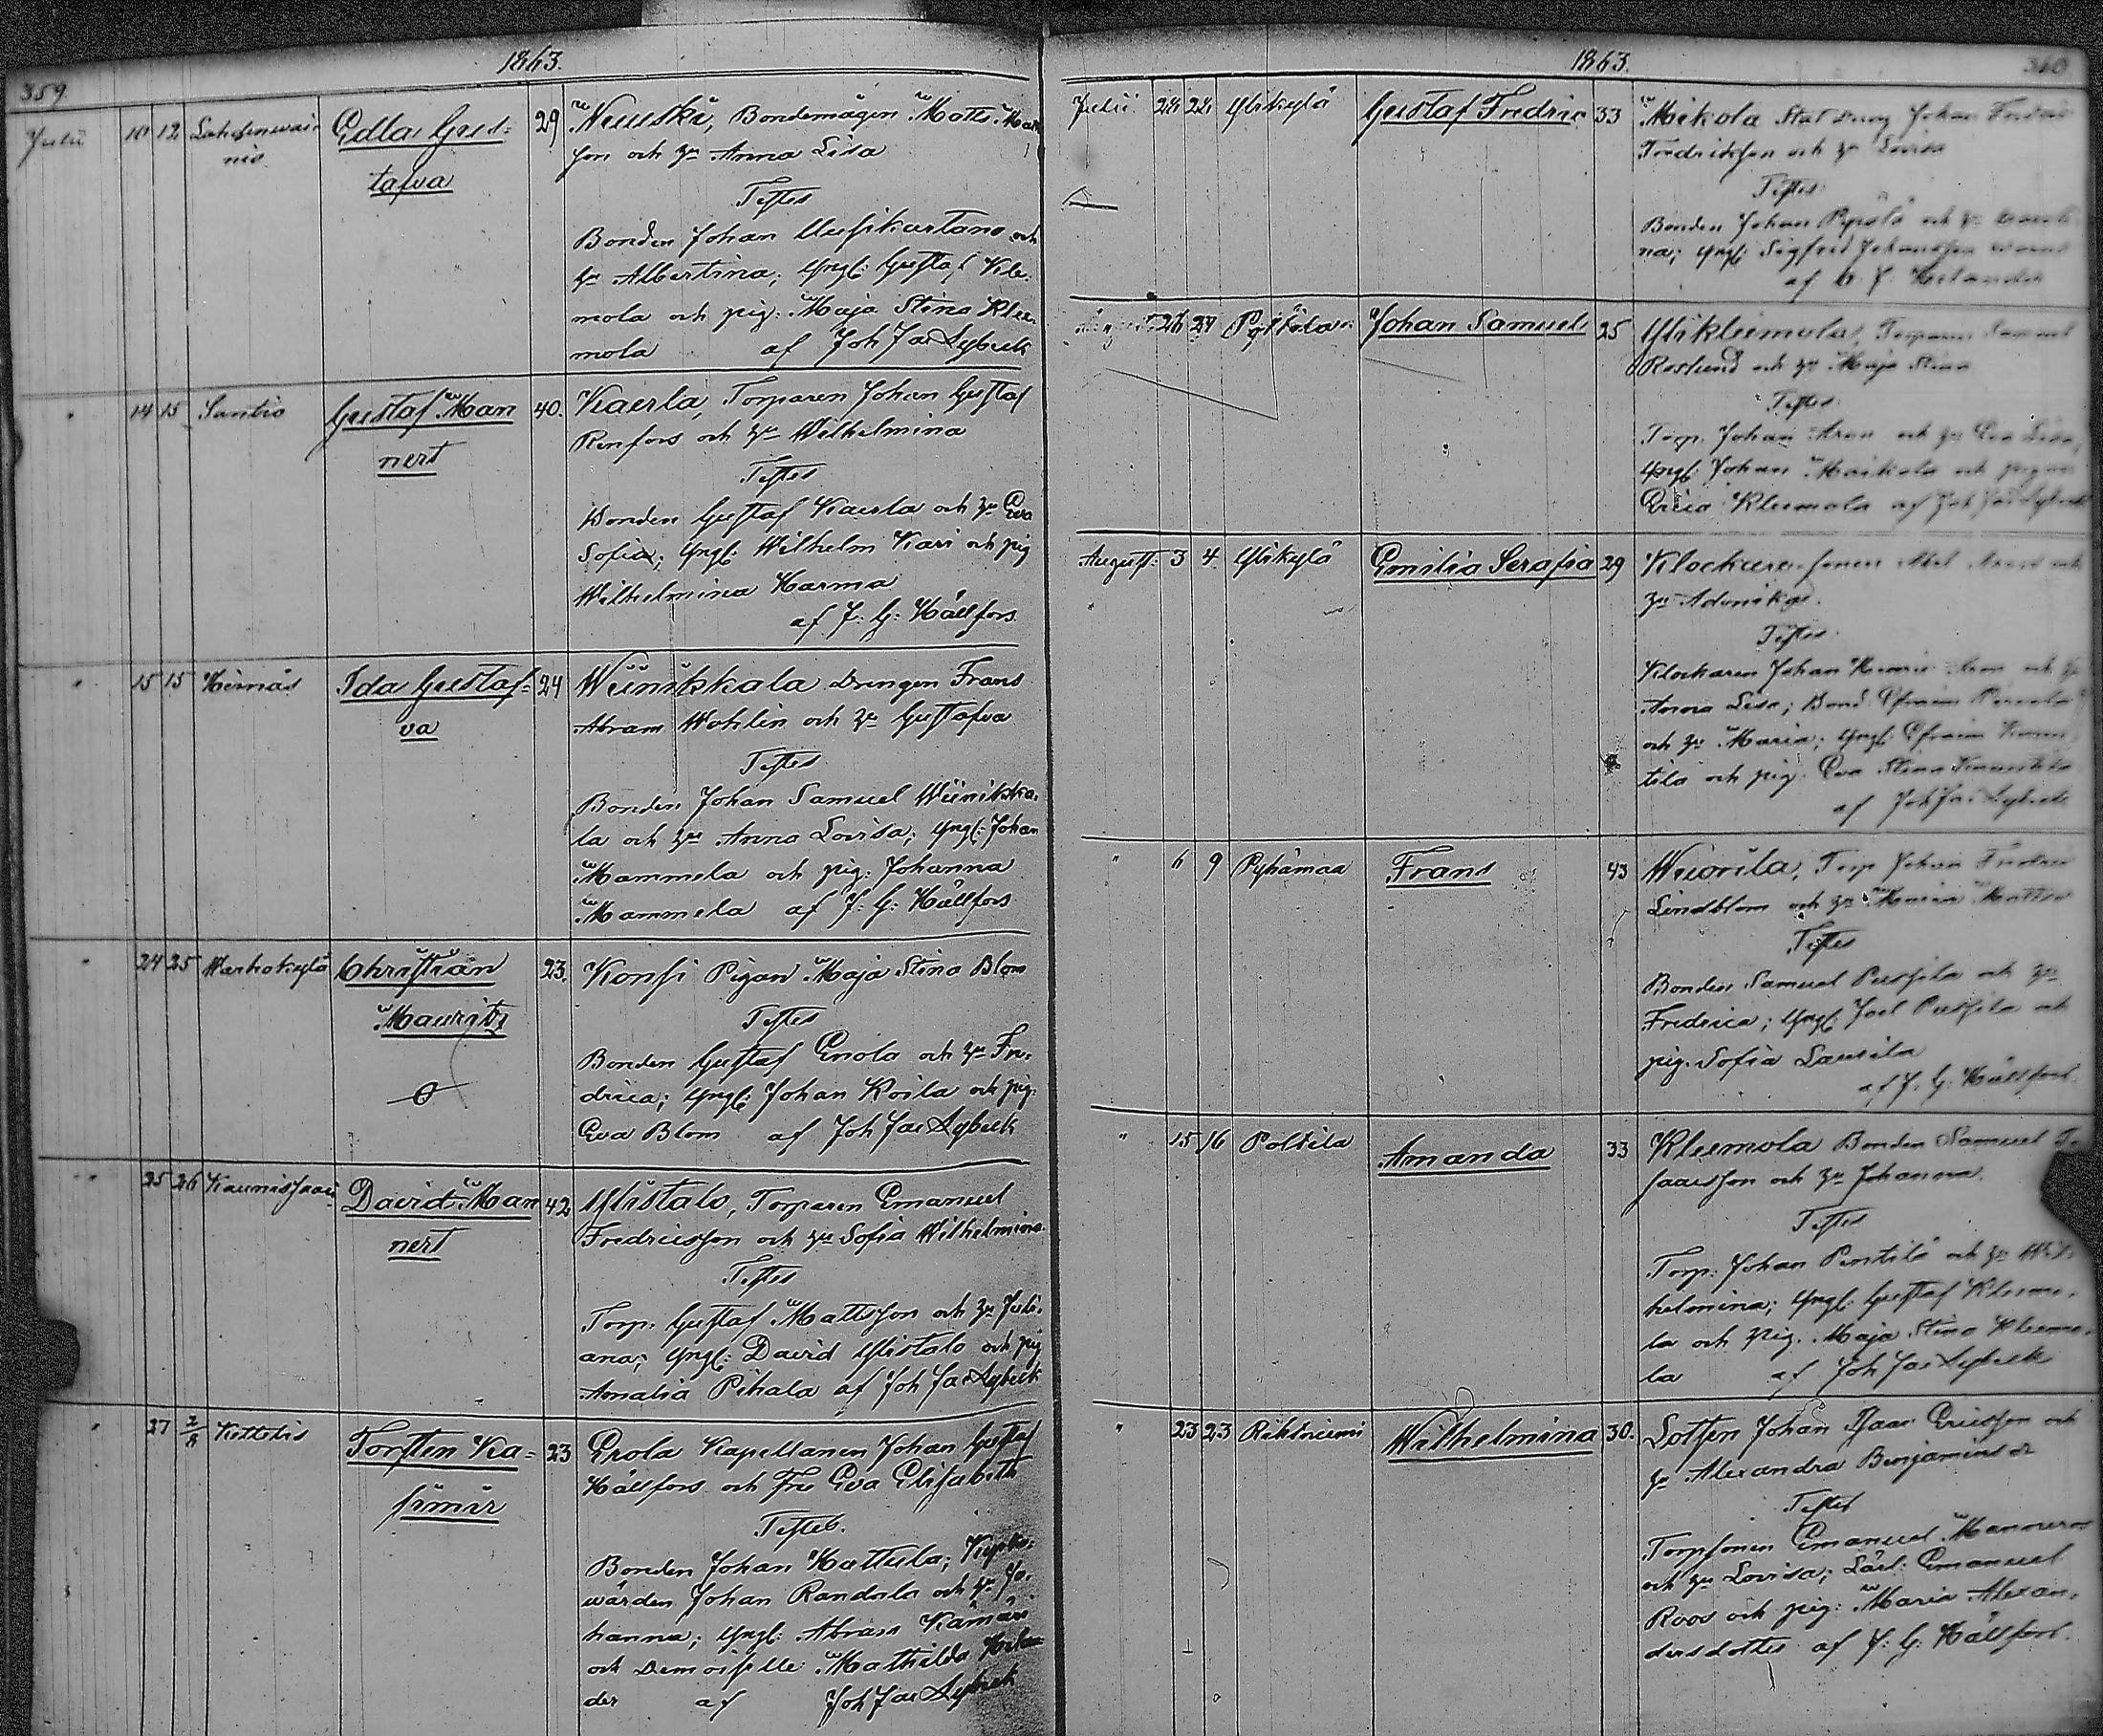 1863.
359
Julii 10 12 Edla Gus= 29 Bondemågen Matts
tafva son och hu Anna Lisa
Testes
Bonden Johan Uusikartano och
hu Albertina; yngl: Gustaf Kle-
mola och pig: Maja Stina Klee-
mola af Joh Jac Lybeck
" 14 15 Santio Gustaf Man 40. Kaerla, Torparen Johan Gustaf
nert Renfors och hu Wilhelmina
Testes
Bonden Gustaf Kaerla och hu Eva
Sofia; yngl: Wilhelm Kari och pig
Wilhelmina Harma
af J: G: Hällfors
" 15 15 Ida Gustaf= 24 Wiinikkala Drengen Frans
va Abram Wahlin och hu Gustafva
Testes
Bonden Johan Samuel Wiinikka-
la och hu Anna Lovisa; yngl: Johan
Mammela och pig: Johanna
Mammela af J: G: Hällfors
" 24 25 Warhokylä Christian 23. Konsi Pigan Maja Stina Blom
Mauritz Testes
Bonden Gustaf Eriola och hu Fre-
drica; yngl: Johan Koila och pig:
Eva Blom af Joh Jac Lybeck
" 25 26 Kaunissaari David Man 42 Ylistalo, Torparen Emanuel
nert Fredricsson och hu Sofia Wilhelmina
Testes
Torp: Gustaf Mattsson och hu Juli-
ana; yngl: David Ylistalo och pig
Amalia Pihala af Joh Jac Lybeck
" 27 2/8 Kettelis Torsten Ka= 23 Erola Kapellanen Johan Gustaf
simir Hällfors och Fru Eva Elisabeth
Testes.
Bonden Johan Hattula; Kyrko-
wärden Johan Randala och hu Jo-
hanna; yngl: Abram Kämäri
och Demoiselle Mathilda Helan-
der af Joh Jac Lybeck
1863.
360
Julii 24 Ylikylä Gustaf Fredric 33 Mikola Johan
Fredriksson och hu Lovisa
Testes
Bonden Johan och hu
na; yngl: Sigfrid Johansson
af Helander
26 27 Johan Samuel 25 Ylikleemola, Torparen Samuel
Roslund och hu Maja Stina
Testes
Torp. Johan Aron och hu Eva Lisa;
yngl: Johan och pigan
Erica Kleemola af Joh Jac Lybeck
August: 3 4 Ylikylä Emilia Serafia 29 Klockare-sonen och
hu
Testes
Klockaren Johan Henric Aron och hu
Anna Lisa; Bond Efraim
och hu Maria; yngl: Efraim
tila och pig: Eva Stina
af Joh Jac Lybeck
" 6 9 Pyhämaa Frans 43 Wuorila, Torp Johan Fredric
Lindblom och hu Maria
Testes
Bonden Samuel Pussila och hu
Fredrica; yngl: Joel Pussila och
pig. Sofia Lausila
af J. G. Hällfors.
" 15 16 Poltila Amanda 33 Kleemola Bonden Samuel
saacsson och hu Johanna.
Testes
Torp: Johan Pentilä och hu Wil-
helmina; yngl: Gustaf Kleemo-
la och pig. Maja Stina Kleemo-
la af Joh Jac Lybeck
" 23 23 Rihtniemi Wilhelmina 30. Lotsen Johan Isaac Ericsson och
hu Alexandra Benjaminsdr
Testes
Emanuel
och hu Lovisa; Emanuel
Roos och pig: Maria Alexan-
dersdotter af J: G: Hällfors.